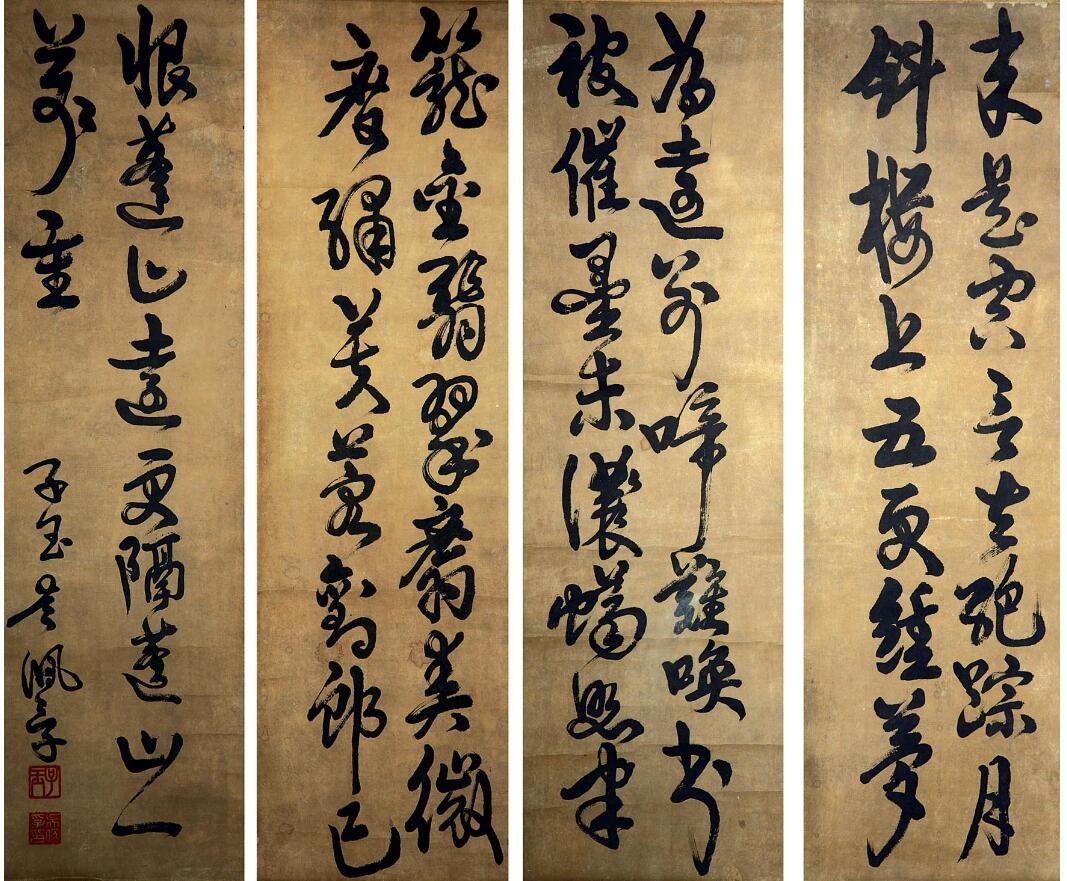 來是空言去絕踪月
斜樓上五更鐘夢
為遠別啼難喚書
被催墨未濃蠟照半
籠金翡翠麝薰微
度繡芙蓉劉郎已
恨蓬山遠更隔蓬山一
萬重
子玉吳佩孚